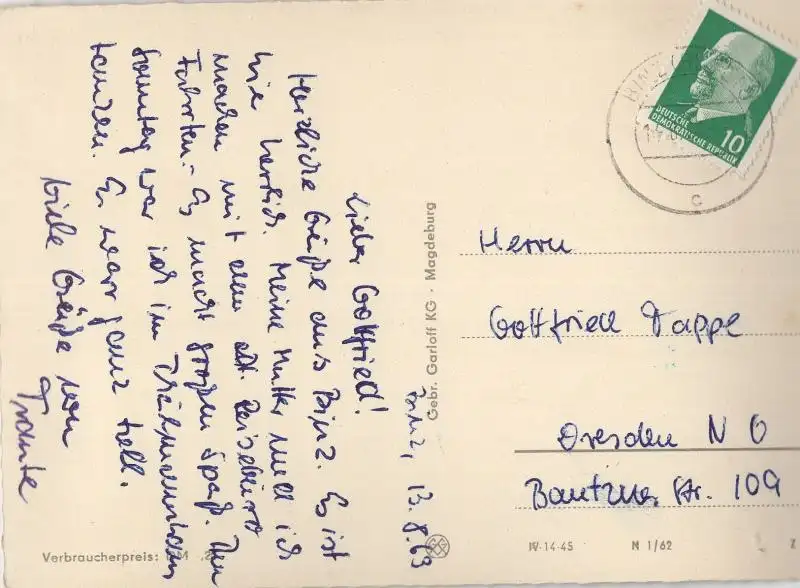 Binz, 13.8.63
Lieber Gottfried!
Herzliche Grüße aus Binz. Es ist
hier herrlich. Meine Mutter und ich
machen mit dem dt. Reisebüro
Fahrten. Es macht großen Spaß. Am
Sonntag war ich im
tanzen. Es war ganz toll.
Viele Grüße von
Traute
Gebr. Garloff KG · Magdeburg
Verbraucherpreis: M
DEUTSCHE
DEMOKRATISCHE REPUBLIK
10
BINZ
c
Herrn
Gottfried Pappe
Dresden N 6
Bautzner Str. 109
IV-14-45 N 1/62 Z